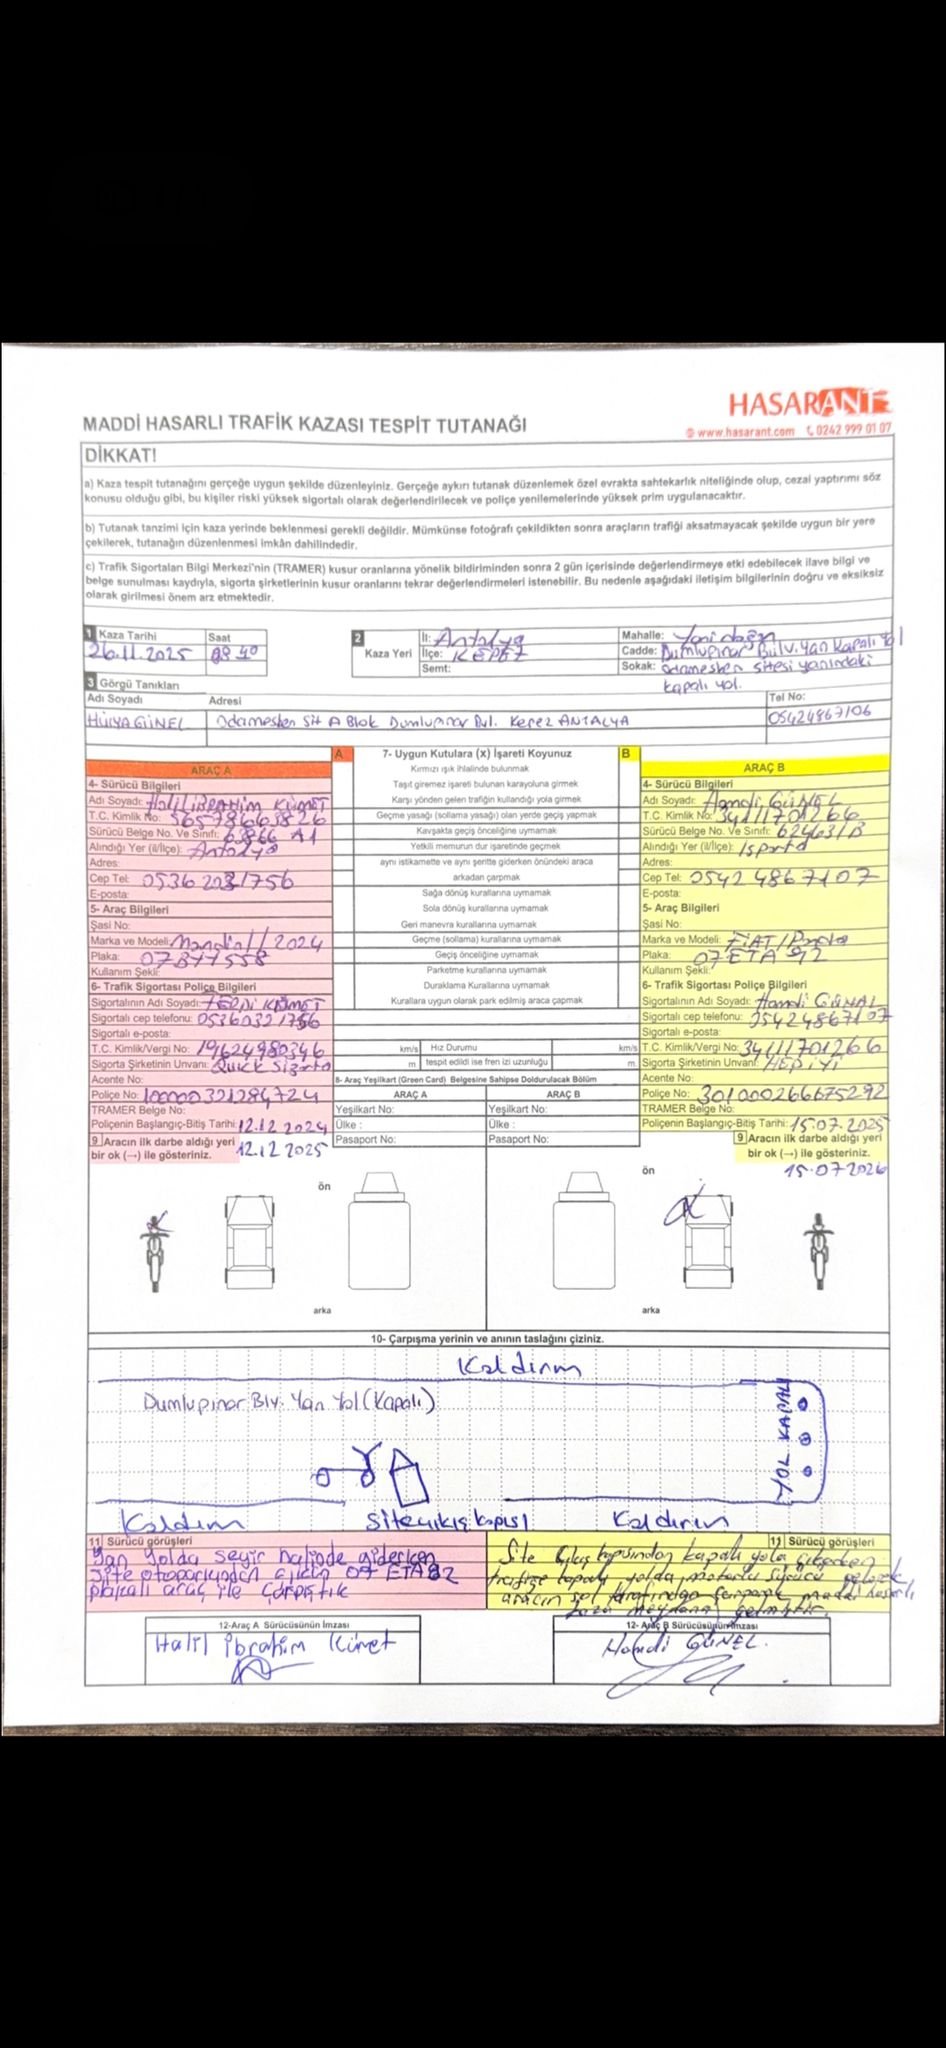 HASARANT
www.hasarant.com 0242 999 01 07
MADDİ HASARLI TRAFİK KAZASI TESPİT TUTANAĞI
DİKKAT!
a) Kaza tespit tutanağını gerçeğe uygun şekilde düzenleyiniz. Gerçeğe aykırı tutanak düzenlemek özel evrakta sahtekarlık niteliğinde olup, cezai yaptırımı söz
konusu olduğu gibi, bu kişiler riski yüksek sigortalı olarak değerlendirilecek ve poliçe yenilemelerinde yüksek prim uygulanacaktır.
b) Tutanak tanzimi için kaza yerinde beklenmesi gerekli değildir. Mümkünse fotoğrafı çekildikten sonra araçların trafiği aksatmayacak şekilde uygun bir yere
çekilerek, tutanağın düzenlenmesi imkân dahilindedir.
c) Trafik Sigortaları Bilgi Merkezi'nin (TRAMER) kusur oranlarına yönelik bildiriminden sonra 2 gün içerisinde değerlendirmeye etki edebilecek ilave bilgi ve
belge sunulması kaydıyla, sigorta şirketlerinin kusur oranlarını tekrar değerlendirmeleri istenebilir. Bu nedenle aşağıdaki iletişim bilgilerinin doğru ve eksiksiz
olarak girilmesi önem arz etmektedir.
1 Kaza Tarihi Saat
26.11.2025
2 Kaza Yeri
İl: Antalya
İlçe: KEPEZ
Semt:
Mahalle: Yenidoğan
Cadde: Dumlupınar Bulv. Yan Kapalı Yol
Sokak: Odamesken sitesi yanındaki
kapalı yol.
3 Görgü Tanıkları
Adı Soyadı Adresi Tel No:
HÜLYA GÜNEL Odamesken Sit A Blok Dumlupınar Bul. Kepez ANTALYA 05424867106
ARAÇ A
4- Sürücü Bilgileri
Adı Soyadı: Halil İBRAHİM KÜMET
T.C. Kimlik No:
Sürücü Belge No. Ve Sınıfı: A1
Alındığı Yer (il/İlçe): Antalya
Adres:
Cep Tel:
E-posta:
5- Araç Bilgileri
Şasi No:
Marka ve Modeli: 2024
Plaka:
Kullanım Şekli:
6- Trafik Sigortası Poliçe Bilgileri
Sigortalının Adı Soyadı:
Sigortalı cep telefonu:
Sigortalı e-posta:
T.C. Kimlik/Vergi No: 19624980346
Sigorta Şirketinin Unvanı: Quick Sigorta
Acente No:
Poliçe No:
TRAMER Belge No:
Poliçenin Başlangıç-Bitiş Tarihi: 12.12 2024
9 Aracın ilk darbe aldığı yeri
bir ok (→) ile gösteriniz.
12.12 2025
A 7- Uygun Kutulara (x) İşareti Koyunuz B
Kırmızı ışık ihlalinde bulunmak
Taşıt giremez işareti bulunan karayoluna girmek
Karşı yönden gelen trafiğin kullandığı yola girmek
Geçme yasağı (sollama yasağı) olan yerde geçiş yapmak
Kavşakta geçiş önceliğine uymamak
Yetkili memurun dur işaretinde geçmek
aynı istikamette ve aynı şeritte giderken önündeki araca
arkadan çarpmak
Sağa dönüş kurallarına uymamak
Sola dönüş kurallarına uymamak
Geri manevra kurallarına uymamak
Geçme (sollama) kurallarına uymamak
Geçiş önceliğine uymamak
Parketme kurallarına uymamak
Duraklama Kurallarına uymamak
Kurallara uygun olarak park edilmiş araca çapmak
km/s Hız Durumu km/s
m tespit edildi ise fren izi uzunluğu m
8- Araç Yeşilkart (Green Card) Belgesine Sahipse Doldurulacak Bölüm
ARAÇ A ARAÇ B
Yeşilkart No: Yeşilkart No:
Ülke : Ülke :
Pasaport No: Pasaport No:
ARAÇ B
4- Sürücü Bilgileri
Adı Soyadı: Hamdi GÜNEL
T.C. Kimlik No: 34117701266
Sürücü Belge No. Ve Sınıfı: 62463/B
Alındığı Yer (il/İlçe): Isparta
Adres:
Cep Tel: 0542 4867107
E-posta:
5- Araç Bilgileri
Şasi No:
Marka ve Modeli: FİAT/Punto
Plaka: 07 ETA 92
Kullanım Şekli:
6- Trafik Sigortası Poliçe Bilgileri
Sigortalının Adı Soyadı: Hamdi GÜNAL
Sigortalı cep telefonu: 05424867107
Sigortalı e-posta:
T.C. Kimlik/Vergi No: 34117701266
Sigorta Şirketinin Unvanı: HEPİYİ
Acente No:
Poliçe No:
TRAMER Belge No:
Poliçenin Başlangıç-Bitiş Tarihi: 15.07.2025
9 Aracın ilk darbe aldığı yeri
bir ok (→) ile gösteriniz.
15.07 2026
ön ön
arka arka
10- Çarpışma yerinin ve anının taslağını çiziniz.
Kaldırım
Dumlupınar Blv. Yan Yol (Kapalı)
YOL KAPALI
Kaldırım Site çıkış kapısı Kaldırım
11 Sürücü görüşleri
Yan yolda seyir halinde giderken
Site otoparkından çıkan 07 ETA 92
plakalı araç ile çarpıştık
11 Sürücü görüşleri
Site çıkış kapısından kapalı yola çıkarken
trafiğe kapalı yolda motorlu sürücü gelerek
aracın sol tarafından çarparak maddi hasarlı
kaza meydana gelmiştir.
12-Araç A Sürücüsünün İmzası
Halil İbrahim Kümet
12- Araç B Sürücüsünün İmzası
Hamdi GÜNEL.